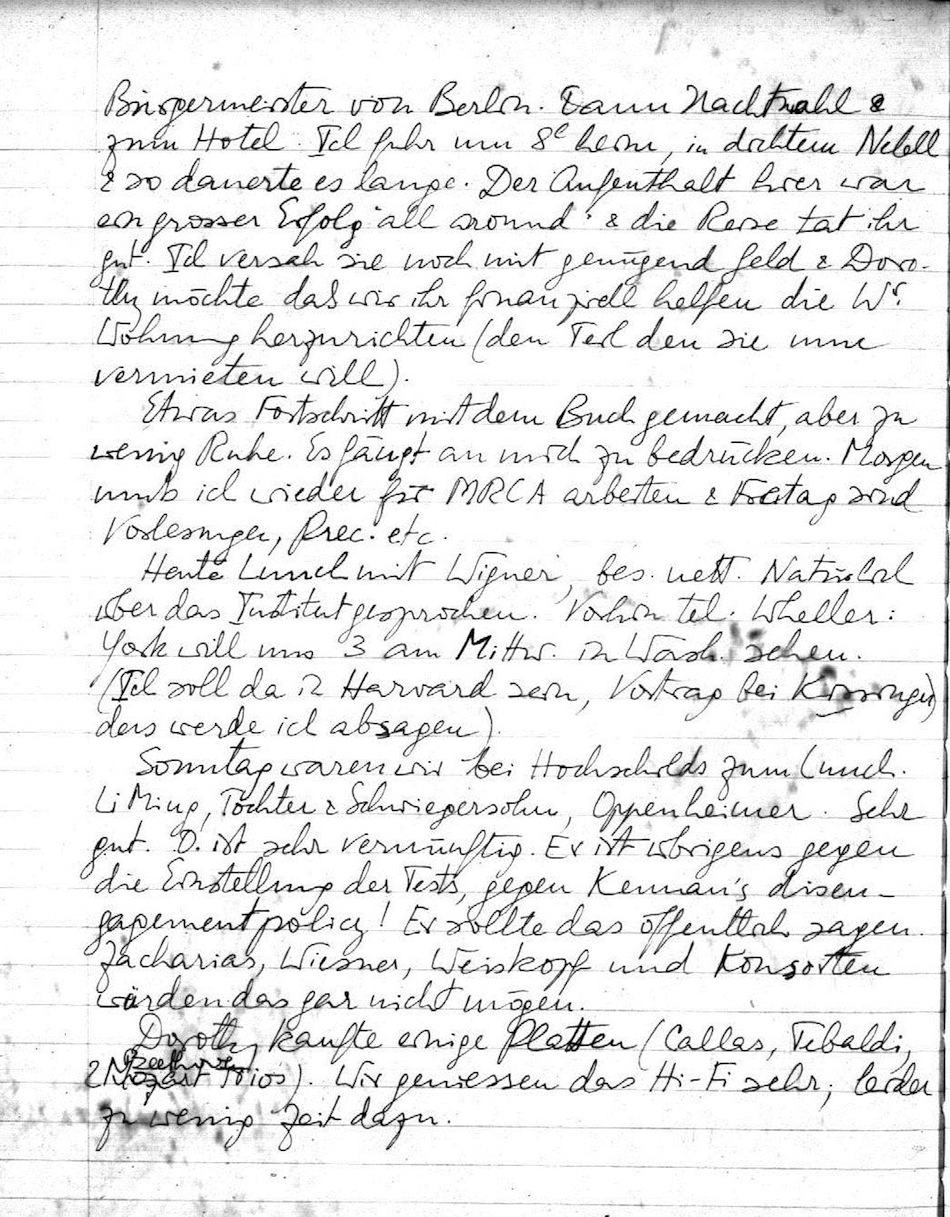 Bürgermeister von Berlin. Dann Nachtmahl &
zum Hotel. Ich fuhr um 8h heim, in dichtem Nebell
& so dauerte es lange. Der Aufenthalt hier war
ein grosser Erfolg "all around" & die Reise tat ihr
gut. Ich versah sie noch mit genügend Geld & Doro-
thy möchte daß wir ihr finanziell helfen die Wr.
Wohnung herzurichten (den Teil den sie
vermieten will).
Etwas Fortschritt mit dem Buch gemacht, aber zu
wenig Ruhe. Es fängt an mich zu bedrücken. Morgen
muß ich wieder für MRCA arbeiten & Freitag sind
Vorlesungen, Prec. etc.
Heute Lunch mit Wigner, bes. nett. Natürlich
über das Institut gesprochen. Vorhin tel. Wheller:
York will uns 3 am Mittw. in Wash. sehen.
(Ich soll da in Harvard sein, Vortrag bei Kissinger)
das werde ich absagen).
Sonntag waren wir bei Hochschilds zum Lunch.
Li Ming, Tochter & Schwiegersohn, Oppenheimer. Sehr
gut. O. ist sehr vernünftig. Er ist übrigens gegen
die Einstellung der Tests, gegen Kennan's disen-
gagement policy! Er sollte das öffentlich sagen.
Zacharias, Wiesner, Weiskopf und Konsorten
würden das gar nicht mögen.
Dorothy kaufte einige Platten (Callas, Tebaldi,
2 Beethoven Trios). Wir geniessen das Hi-Fi sehr; leider
zu wenig Zeit dazu.